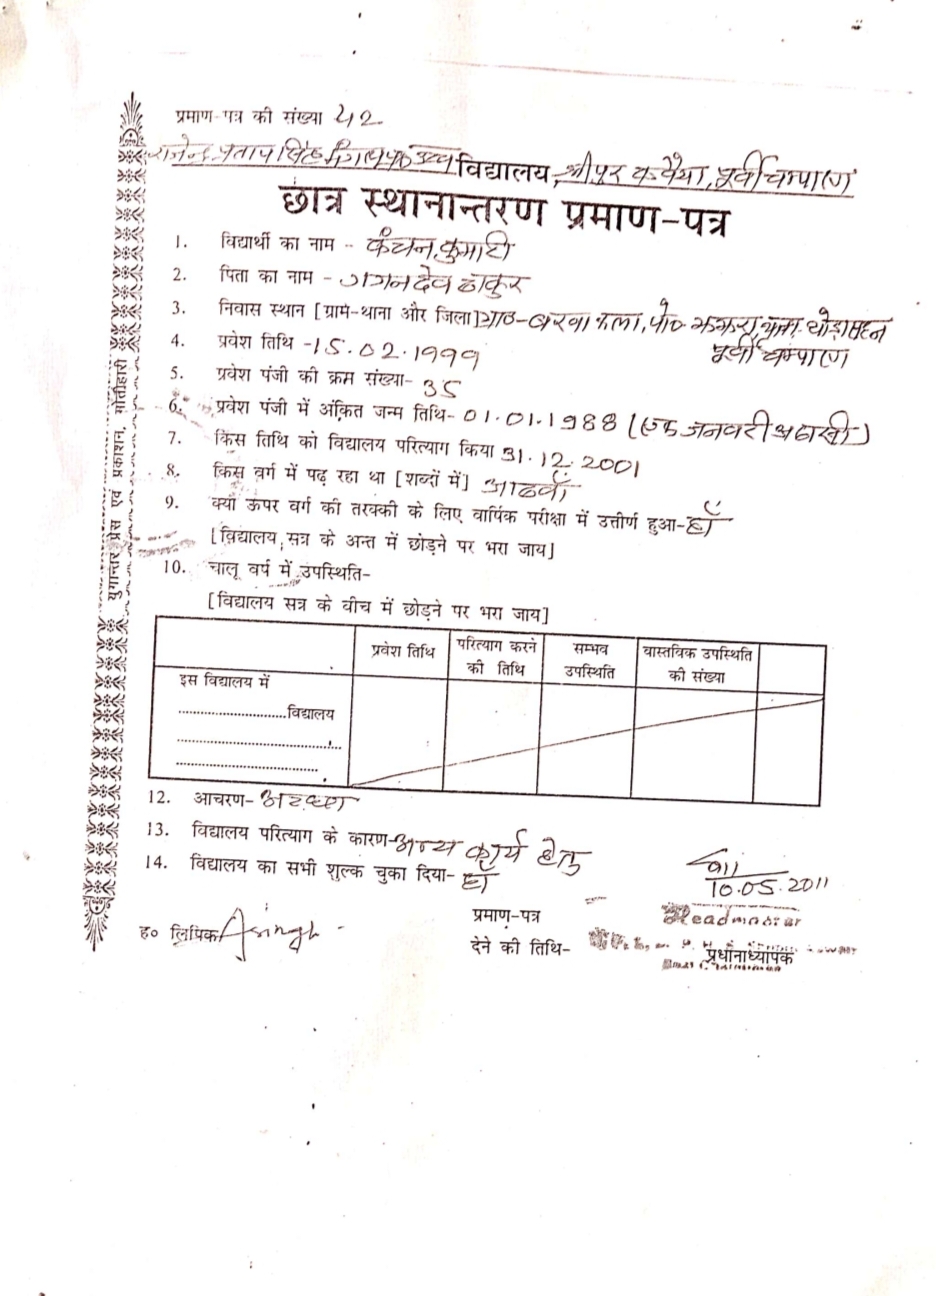 प्रमाण-पत्र की संख्या 42
राजेन्द्र प्रताप सिंह उच्च विद्यालय, श्रीपुर कवैया, पूर्वी चम्पारण
छात्र स्थानान्तरण प्रमाण-पत्र
1. विद्यार्थी का नाम - कंचन कुमारी
2. पिता का नाम - गगनदेव ठाकुर
3. निवास स्थान [ग्राम-थाना और जिला] ग्राम-बरवा कला, पो० झझरा, थाना-घोड़ासहन
पूर्वी चम्पारण
4. प्रवेश तिथि -15.02.1999
5. प्रवेश पंजी की क्रम संख्या- 35
6. प्रवेश पंजी में अंकित जन्म तिथि- 01.01.1988 (एक जनवरी अठासी)
7. किस तिथि को विद्यालय परित्याग किया 31.12.2001
8. किस वर्ग में पढ़ रहा था [शब्दों में] आठवाँ
9. क्या ऊपर वर्ग की तरक्की के लिए वार्षिक परीक्षा में उत्तीर्ण हुआ- हाँ
[विद्यालय सत्र के अन्त में छोड़ने पर भरा जाय]
10. चालू वर्ष में उपस्थिति-
[विद्यालय सत्र के बीच में छोड़ने पर भरा जाय]
प्रवेश तिथि परित्याग करने की तिथि सम्भव उपस्थिति वास्तविक उपस्थिति की संख्या
इस विद्यालय में
..............................विद्यालय
12. आचरण- अच्छा
13. विद्यालय परित्याग के कारण- अन्य कार्य हेतु
14. विद्यालय का सभी शुल्क चुका दिया- हाँ
10.05.2011
ह० लिपिक Asingh
प्रमाण-पत्र
देने की तिथि-
Headmaster
प्रधानाध्यापक
युगान्तर प्रेस एवं प्रकाशन, मोतीहारी